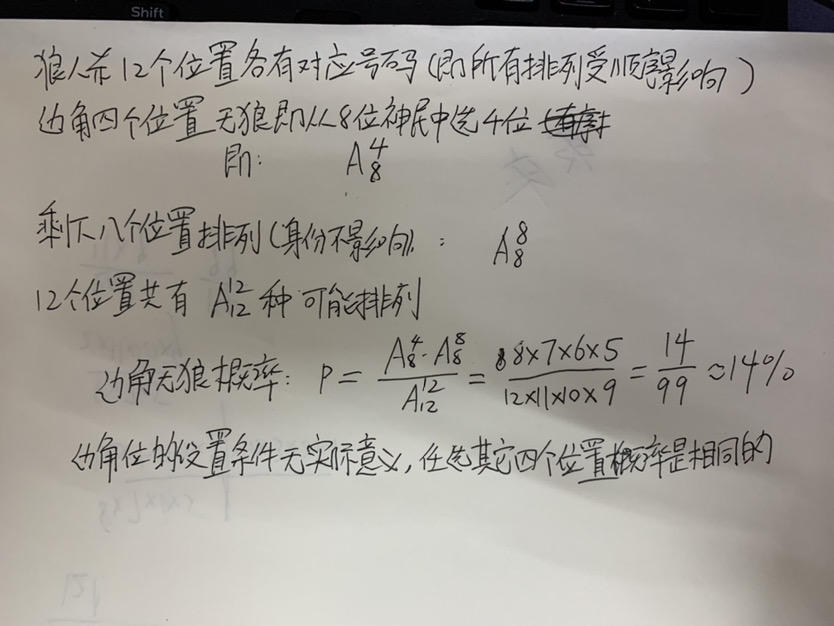 Shift
狼人杀12个位置各有对应号码(即所有排列受顺序影响)
边角四个位置无狼即从8位神民中选4位
即: A₈⁴
剩下八个位置排列(身份不影响): A₈⁸
12个位置共有 A₁₂¹² 种可能排列
边角无狼概率: P = A₈⁴·A₈⁸ / A₁₂¹² = 8×7×6×5 / 12×11×10×9 = 14/99 ≈14%
边角位的设置条件无实际意义,任选其它四个位置概率是相同的